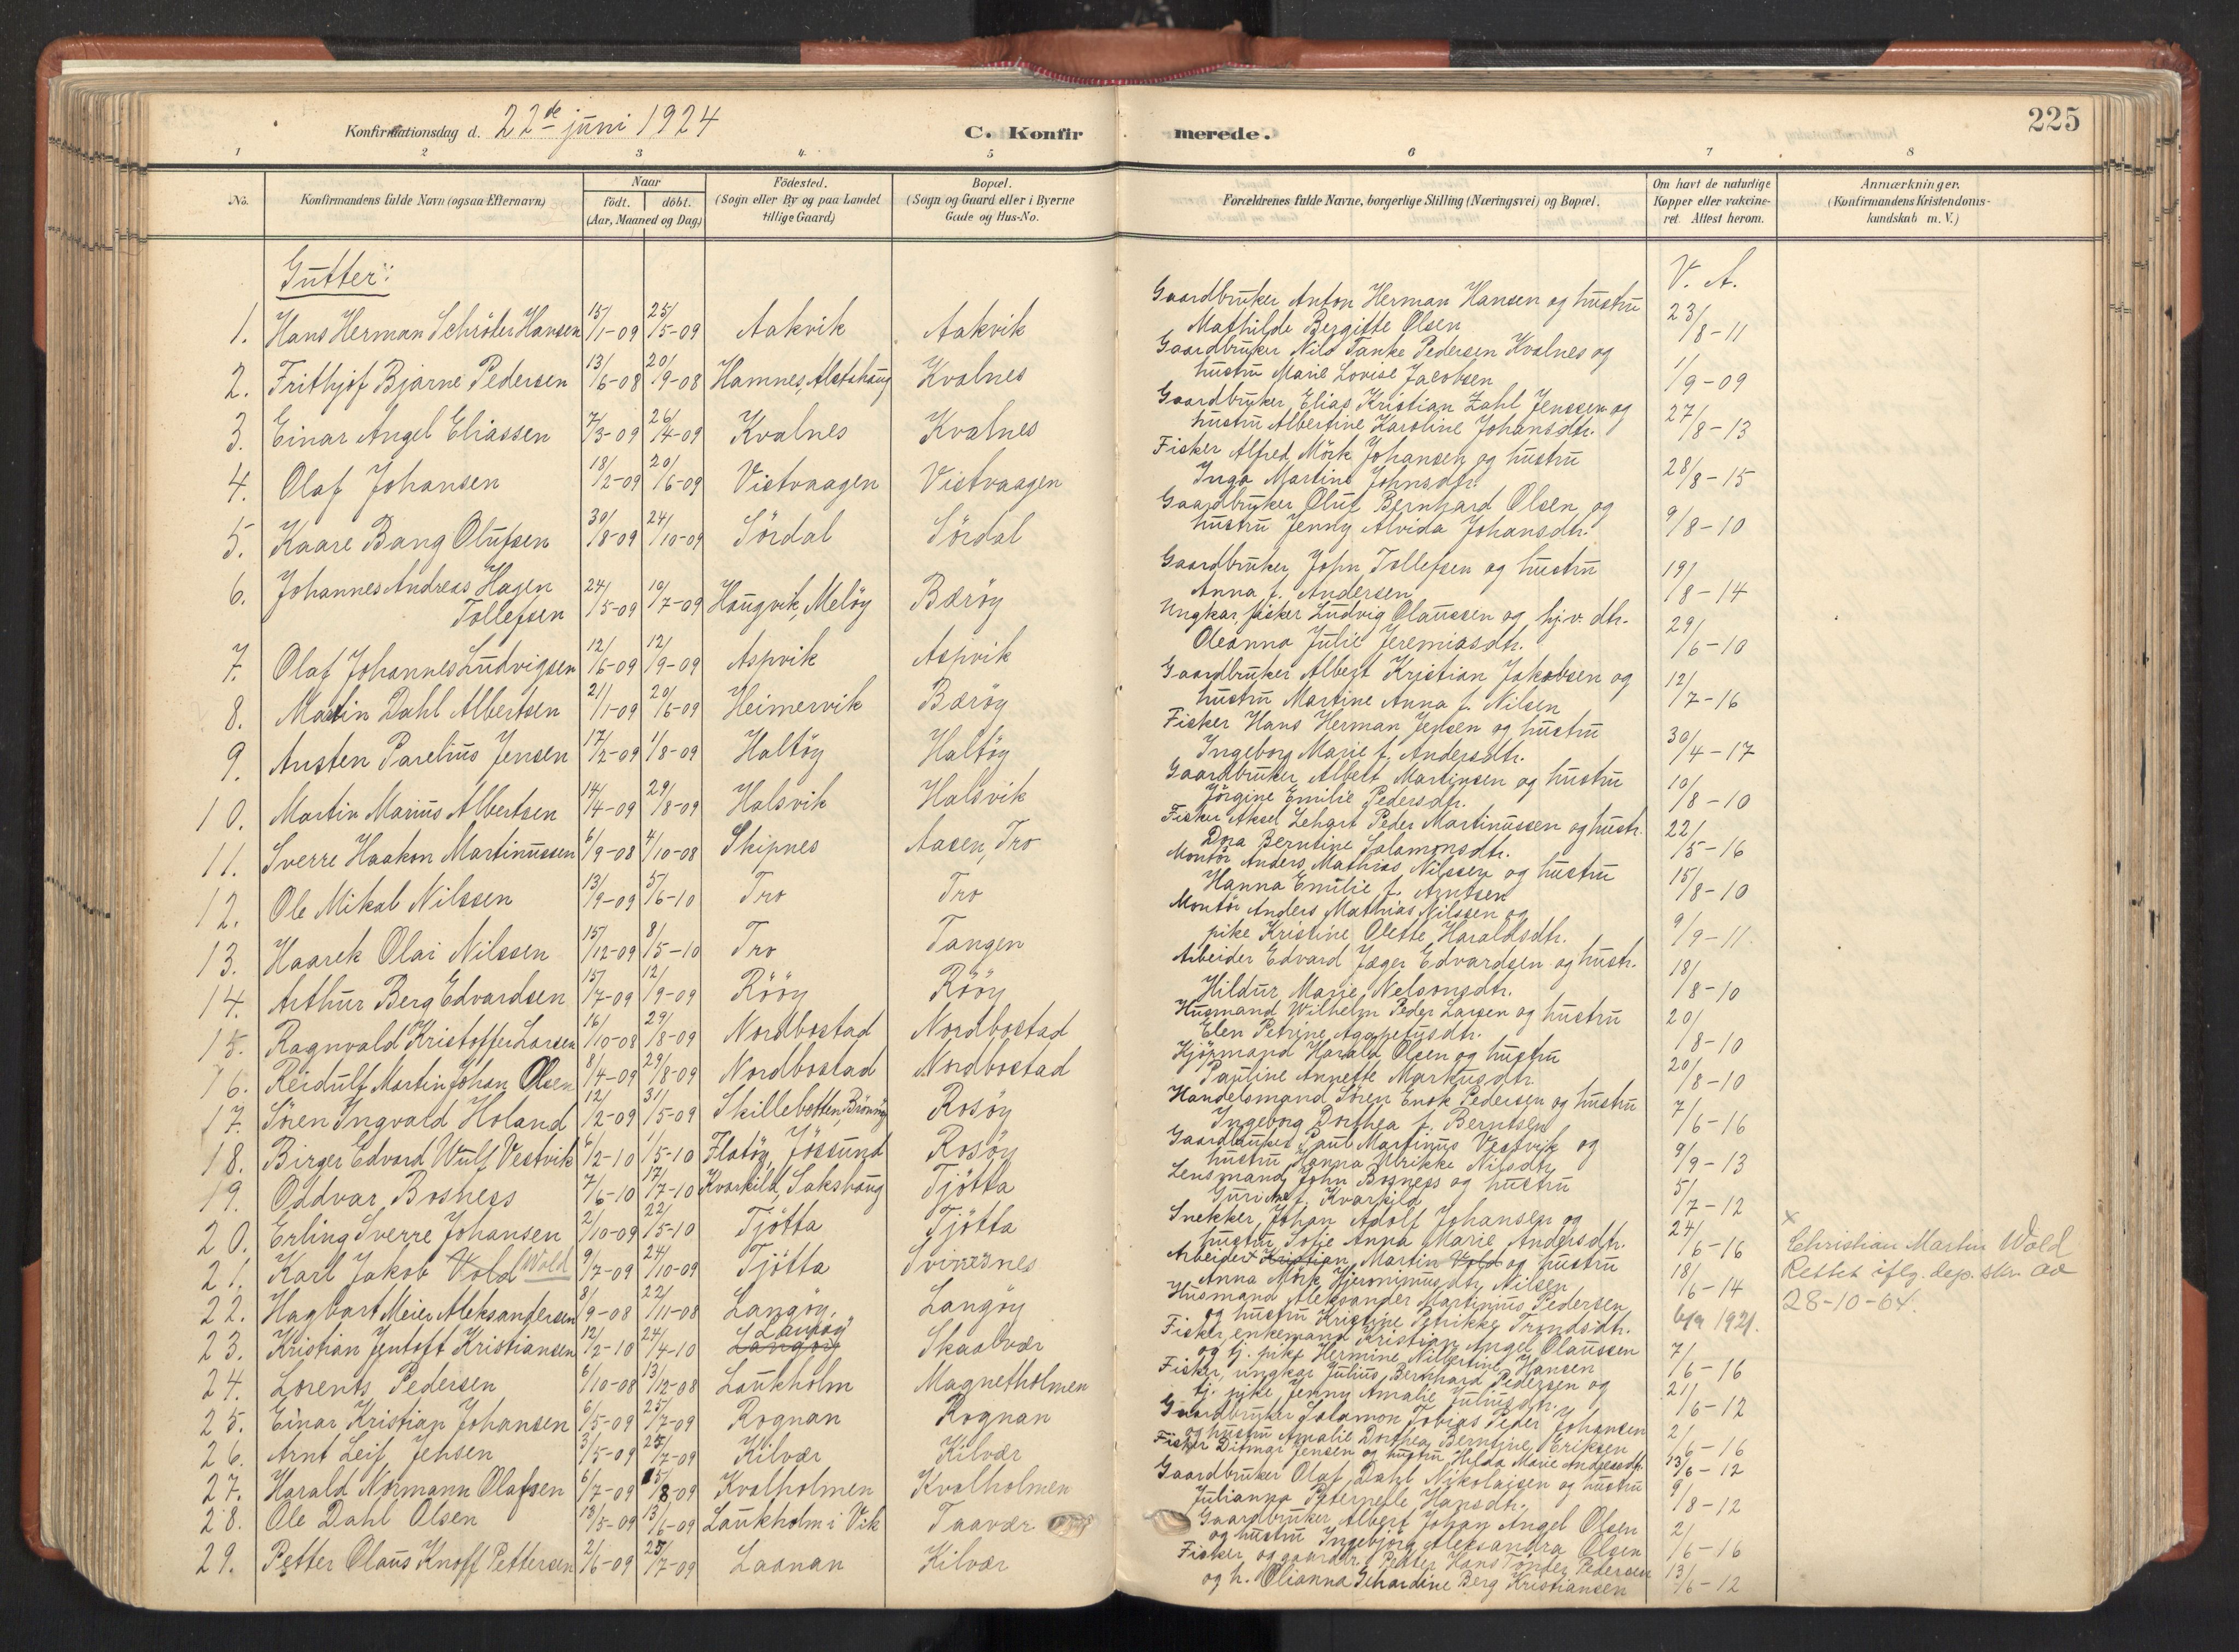 Konfirmationsdag d. 22de juni 1924
C. Konfirmerede.
225
1 2 3 4 5 6 7 8
No.
Konfirmandens fulde Navn (ogsaa Efternavn)
Naar
födt. döbt.
(Aar, Maaned og Dag)
Födested.
(Sogn eller By og paa Landet
tillige Gaard)
Bopæl.
(Sogn og Gaard eller i Byerne
Gade og Hus-No.
Forældrenes fulde Navne, borgerlige Stilling (Næringsvei) og Bopæl.
Om havt de naturlige
Kopper eller vakcine-
ret. Attest herom.
Anmærkninger.
(Konfirmandens Kristendoms-
kundskab m. V.)
Gutter:
V. A.
1. Hans Herman Schröter Hansen 15/1-09 25/5-09 Aakvik Aakvik Gaardbruker Anton Herman Hansen og hustru
Mathilde Bergitte Olsen 23/8-11
2. Frithjof Bjarne Pedersen 13/6-08 20/9-08 Hamnes, Alstahaug Kvalnes Gaardbruker Nils Tanke Pedersen Kvalnes og
hustru Marie Lovise Jacobsen 1/9-09
3. Einar Angel Eliassen 7/3-09 26/4-09 Kvalnes Kvalnes Gaardbruker Elias Kristian Zahl Jenssen og
hustru Albertine Karoline Johansdtr. 27/8-13
4. Olaf Johansen 18/2-09 20/6-09 Vistvaagen Vistvaagen Fisker Alfred Mörk Johansen og hustru
Inga Martine Johnsdtr. 28/8-15
5. Kaare Bang Olufsen 30/8-09 24/10-09 Sördal Sördal Gaardbruker Oluf Bernhard Olsen og
hustru Jenny Alvida Johansdtr. 9/8-10
6. Johannes Andreas Hagen
Tollefsen 24/5-09 10/7-09 Haugvik, Melöy Bæröy Gaardbruker John Tollefsen og hustru
Anna f. Andersen 19/8-14
7. Olaf Johannes Ludvigsen 12/6-09 12/9-09 Aspvik Aspvik Ungkar fisker Ludvig Olaussen og hj.v. dtr.
Oleanna Julie Jeremiasdtr. 29/6-10
8. Martin Dahl Albertsen 21/1-09 20/6-09 Heimervik Bæröy Gaardbruker Albert Kristian Jakobsen og
hustru Martine Anna f. Nilsen 12/7-16
9. Austen Parelius Jensen 17/2-09 1/8-09 Haltöy Haltöy Fisker Hans Herman Jensen og hustru
Ingeborg Marie f. Andersdtr. 30/4-17
10. Martin Marius Albertsen 14/4-09 29/8-09 Halsvik Halsvik Gaardbruker Albert Martinsen og hustru
Jörgine Emilie Pedersdtr. 10/8-10
11. Sverre Haakon Martinussen 6/9-08 4/10-08 Skipnes Aasen, Tro Fisker Aksel Lehart Peder Martinussen og hustr.
Dora Berntine Salamonsdtr. 22/5-16
12. Ole Mikal Nilssen 13/9-09 5/6-10 Tro Tro Montör Anders Mathias Nilssen og hustru
Hanna Emilie f. Arntsen 15/8-10
13. Haarek Olai Nilssen 15/12-09 8/5-10 Tro Tangen Montör Anders Mathias Nilssen og
pike Kristine Olette Haraldsdtr. 9/9-11
14. Arthur Berg Edvardsen 15/7-09 12/9-09 Rööy Rööy Arbeider Edvard Jæger Edvardsen og hustr.
Hildur Marie Nelsonsdtr. 18/8-10
15. Ragnvald Kristoffer Larsen 16/10-08 29/8-09 Nordbostad Nordbostad Husmand Wilhelm Peder Larsen og hustru
Elen Petrine Agapetusdtr. 20/8-10
16. Reidulf Martin Johan Olsen 8/4-09 29/8-09 Nordbostad Nordbostad Kjörmand Harald Olsen og hustru
Pauline Annette Markusdtr. 20/8-10
17. Sören Ingvald Holand 12/2-09 31/5-09 Skillebotten, Brönnöy Rosöy Handelsmand Sören Enok Pedersen og hustru
Ingeborg Dorthea f. Berntsen 7/6-16
18. Birger Edvard Wulf Vestvik 6/2-10 1/5-10 Flatöy, Jössund Rosöy Gaardbruker Paul Martinus Vestvik og
hustru Hanna Ulrikke Nilsdtr. 9/9-13
19. Oddvar Bosness 7/6-10 17/7-10 Kvarkild, Sakshaug Tjötta Lensmand John Bosness og hustru
Guri Ane f. Kvarkild 5/7-12
20. Erling Sverre Johansen 2/10-09 22/5-10 Tjötta Tjötta Snekker Johan Adolf Johansen og
hustru Sofie Anna Marie Andersdtr. 24/6-16
21. Karl Jakob Vold Wold 9/7-09 24/10-09 Tjötta Svinesnes Arbeider x Kristian Martin Vold og hustru
Anna Mörk Hjeronimusdtr. Nilsen 18/6-14
x
Christian Martin Wold
Rettet iflg. dep. skr. av
28-10-64.
22. Hagbart Meier Aleksandersen 8/9-08 22/11-08 Langöy Langöy Husmand Aleksander Martinus Pedersen
og hustru Kristine Petrikke Trondsdtr. 1921.
23. Kristian Jentoft Kristiansen 12/2-10 24/4-10 Langöy Langöy Skaalvær Fisker, enkemand Kristian Angel Olaussen
og tj. pike Hermine Nilbertine Hansen 7/6-16
24. Lorents Pedersen 6/10-08 13/12-08 Laukholm Magnetholmen Fisker, ungkar Julius Bernhard Pedersen og
tj. pike Jenny Amalie Juliusdtr. 21/6-12
25. Einar Kristian Johansen 6/5-09 25/7-09 Rognan Rognan Gaardbruker Salamon Tobias Peder Johansen
og hustru Amalie Dorthea Berntine Eriksen 2/6-16
26. Arnt Leif Jensen 3/5-09 25/7-09 Kilvær Kilvær Fisker Ditmar Jensen og hustru Hilda Marie Andreasdtr. 13/6-12
27. Harald Normann Olafsen 6/7-09 15/8-09 Kvalholmen Kvalholmen Gaardbruker Olaf Dahl Nikolaisen og hustru
Julianna Peternelle Hansdtr. 9/8-12
28. Ole Dahl Olsen 13/5-09 13/6-09 Laukholm i Vik Taavær Gaardbruker Albert Johan Angel Olsen
og hustru Ingebjörg Aleksandra Olsen 2/6-16
29. Petter Olaus Knoff Pettersen 2/6-09 25/7-09 Laanan Kilvær Fisker og gaardbr. Petter Hans Tönder Pedersen
og h. Olianna Gehardine Berg Kristiansen 13/6-12